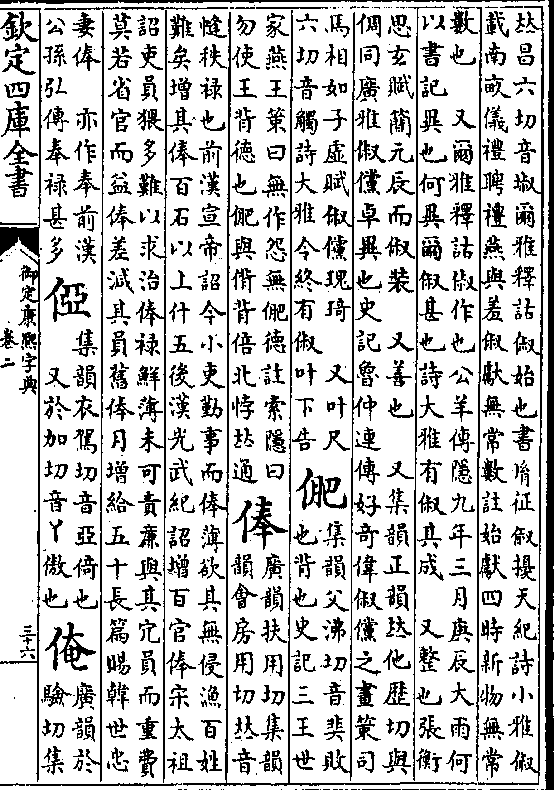 𠀤昌六切音埱爾雅釋詁俶始也書胤征俶擾天紀詩小雅俶
載南畝儀禮聘禮燕與羞俶獻無常數註始獻四時新物無常
數也　又爾雅釋詁俶作也公羊傳隱九年三月庚辰大雨何
以書記異也何異爾俶甚也詩大雅有俶其成　又整也張衡
思玄賦簡元辰而俶裝　又善也　又集韻正韻𠀤他歷切與
倜同廣雅俶儻卓異也史記魯仲連傳好奇偉俶儻之畫策司
馬相如子虛賦俶儻瑰琦　又叶尺
六切音觸詩大雅令終有俶叶下告
俷
集韻父沸切音斐敗
也背也史記三王世
家燕王策曰無作怨無俷德註索隱曰
勿使王背德也俷與偝背倍北悖𠀤通
俸
廣韻扶用切集韻
韻會房用切𠀤音
秩祿也前漢宣帝詔今小吏勤事而俸薄欲其無侵漁百姓
難矣增其俸百石以上什五後漢光武紀詔增百官俸宋太祖
詔吏員猥多難以求治俸祿鮮薄未可責廉與其冗員而重費
莫若省官而益俸差減其員舊俸月增給五十長篇賜韓世忠
妻俸　亦作奉前漢
公孫弘傳奉祿甚多
俹
集韻衣駕切音亞倚也
又於加切音丫傲也
俺
廣韻於
驗切集
欽定四庫全書
御定康熙字典
卷二
三十六